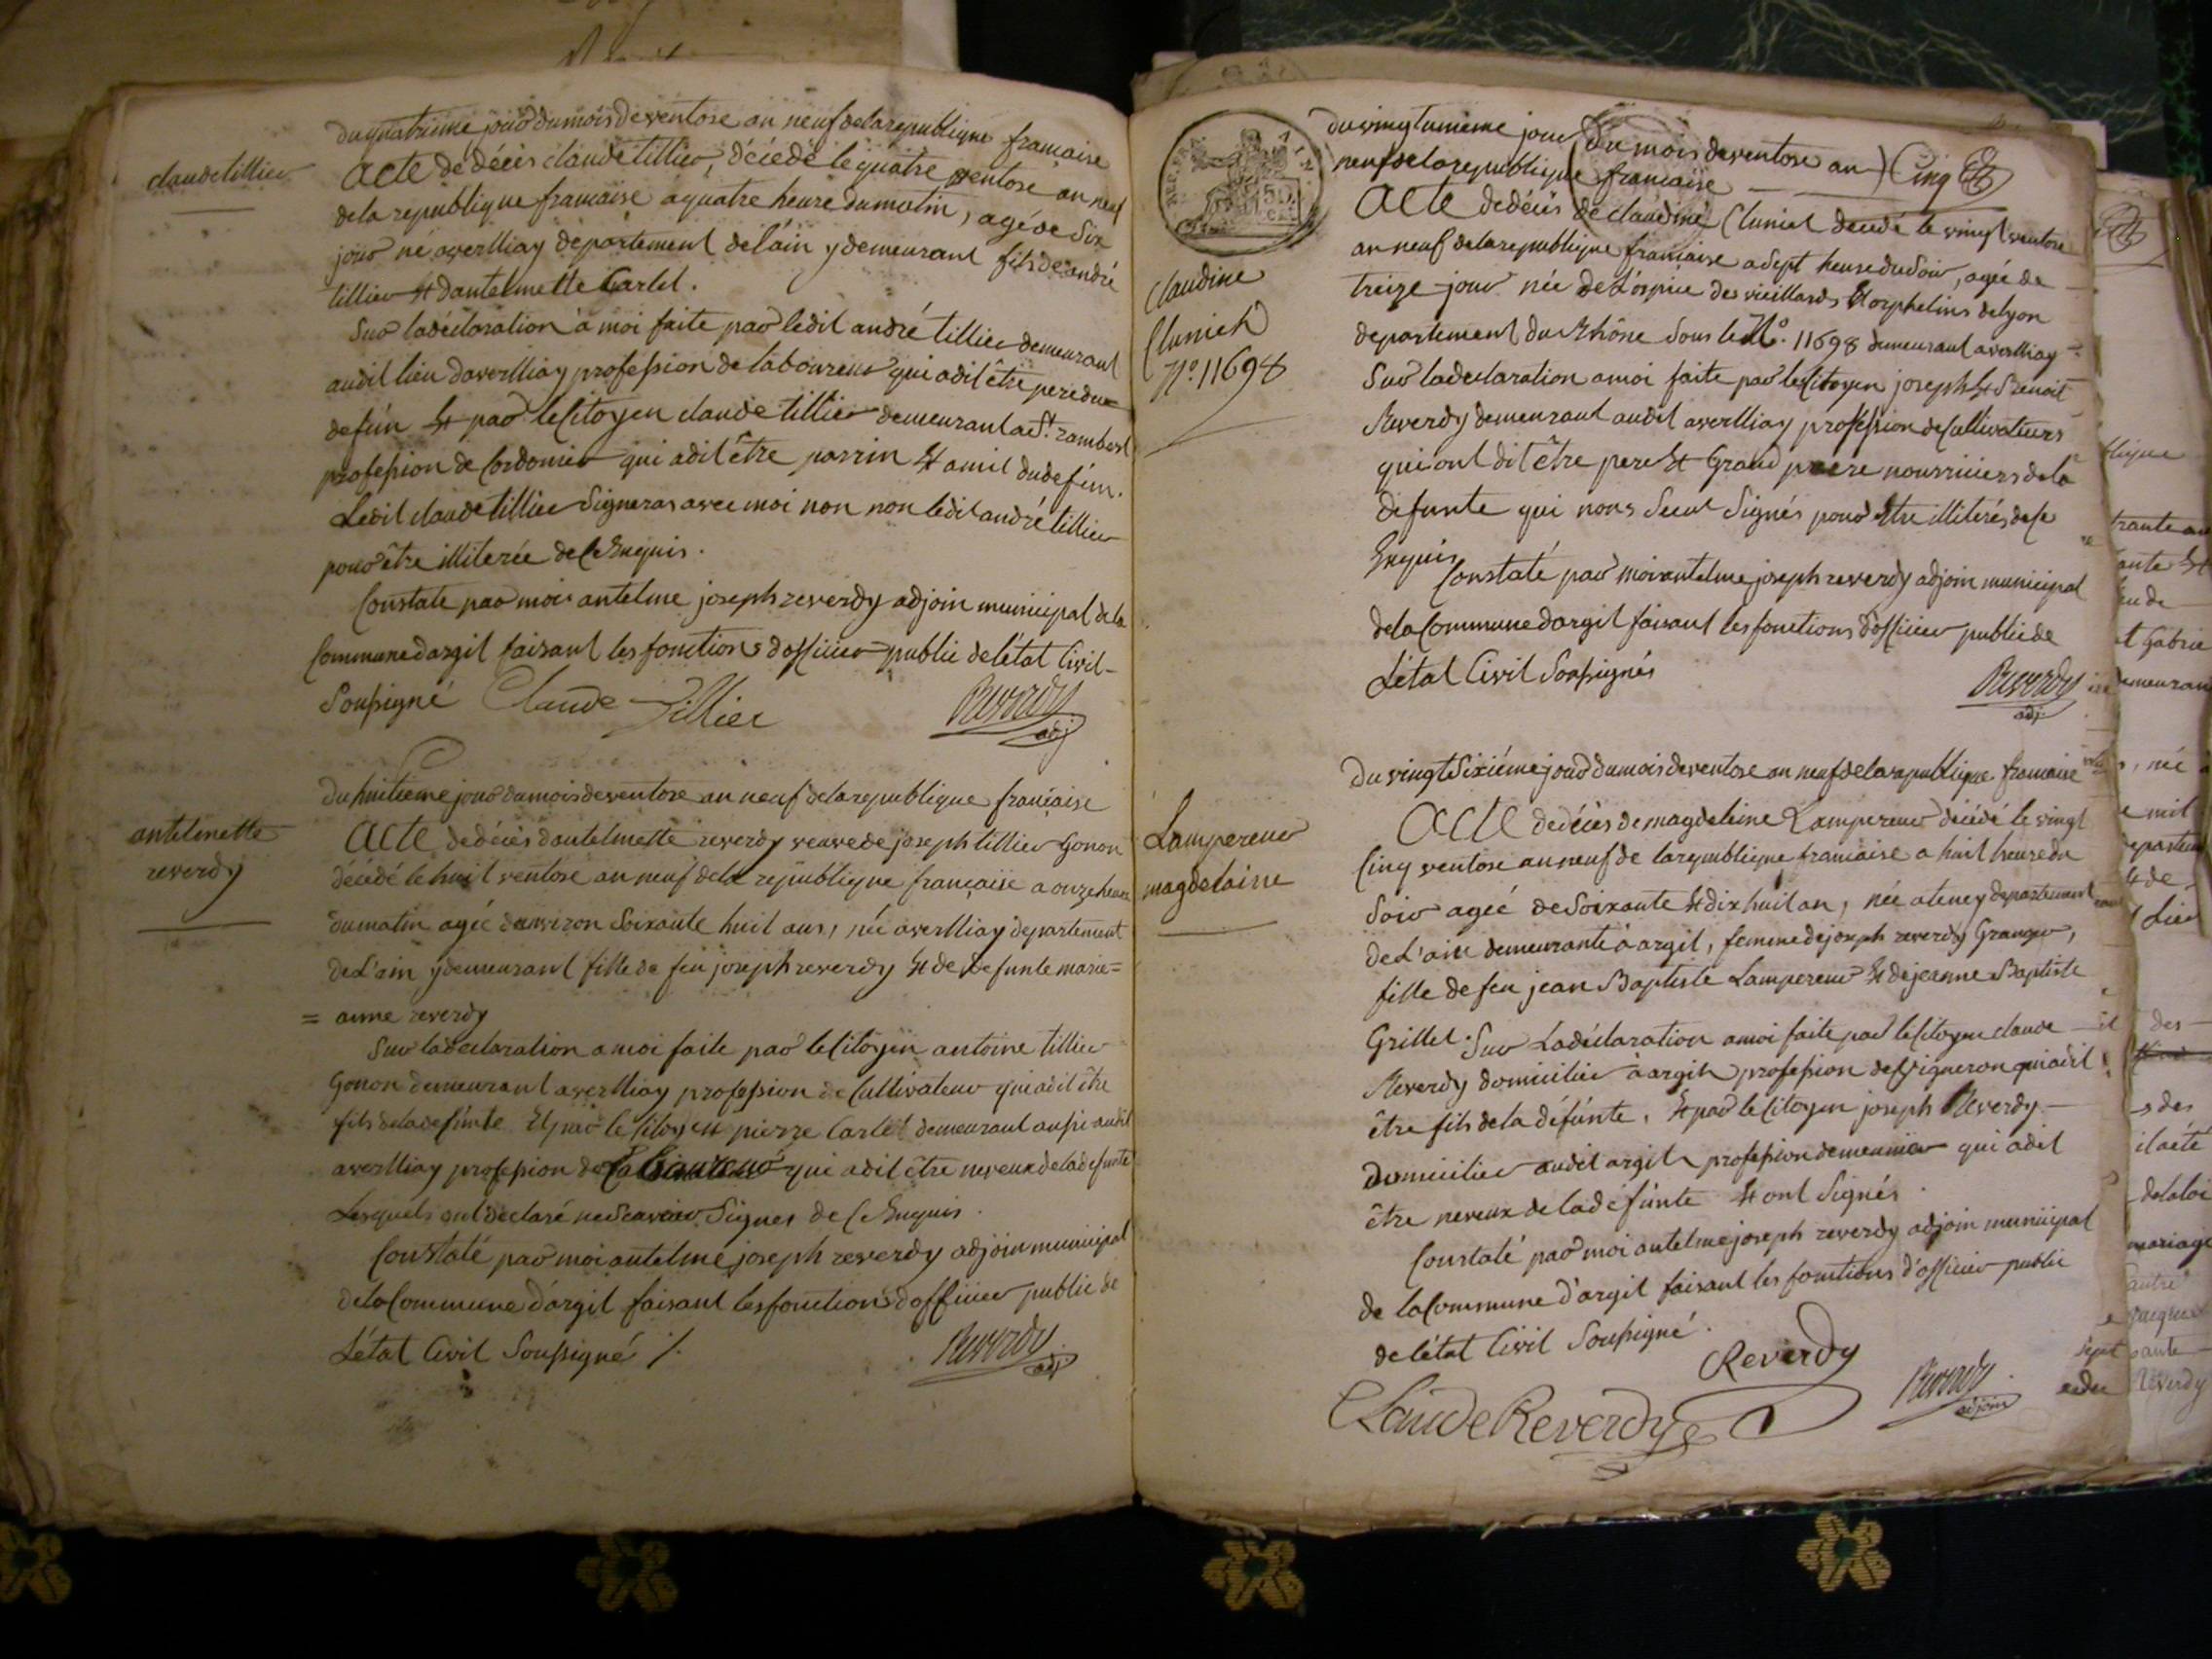 du quatrieme jour du mois de ventose an neuf de la republique francaise
claude tillier
Acte de décès claude tillier, décédé le quatre ventose an neuf
de la republique francaise a quatre heure du matin, agé de six
jour né a verlliay departement de l'ain y demeurant fils de andré
tillier et dantelmette Carlet.
Sur la déclaration à moi faite par ledit andré tillier demeurant
audit lieu daverlliay profession de laboureur qui a dit être pere du
defun et par le Citoyen claude tillier demeurant a St. rambert
profession de Cordonier qui a dit être parrin et amit du defun.
Ledit claude tillier Signeras avec moi non non ledit andré tillier
pour être illiterée de Ce Enquis.
Constate par moi antelme joseph reverdy adjoin municipal de la
Commune dargit faisant les fonctions d'officier public de létat Civil
Soussigné Claude Tillier Reverdy
adj
du huitieme jour du mois de ventose an neuf de la republique française
antelmette
reverdy
Acte de décès dantelmette reverdy veuve de joseph tillier Gonon
décédé le huit ventose an neuf de la republique française a onze heure
du matin agée denviron Soixante huit ans, née a verlliay departement
de L'ain y demeurant fille de feu joseph reverdy et de defunte marie=
= anne reverdy
Sur la declaration a moi faite par le Citoyen antoine tillier
Gonon demeurant a verlliay profession de Cultivateur qui a dit être
fils de la defunte Et par le Citoyen pierre Carlet demeurant aussi audit
averlliay profession de qui a dit être neveux de la defunte
Lesquels ont declaré ne Scavoir Signer de Ce Enquis.
Constaté par moi antelme joseph reverdy adjoin municipal
de la Commune d'argit faisant les fonctions d'officier public de
L'état Civil Soussigné /. Reverdy
adj.
du vingt unieme jour du mois de ventose an Cinq
neuf de la republique francaise
Acte de décès de claudine Cluniet decedé le vingt ventose
an neuf de la republique francaise a Sept heure du Soir, agée de
Claudine
Treize jour née de L'ospice des vieillards et orphelins de lyon
N° 11698
departement du Rhône Sous le N°. 11698 demeurant a verlliay
Sur la declaration a moi faite par le Citoyen joseph et Benoit
Reverdy demeurant audit averlliay profession de Cultivateurs
qui ont dit être pere et Grand pere nourriciers de la
defunte qui nons Seut Signés pour Etre illiterés de Ce
Enquis
Constaté par moi antelme joseph reverdy adjoin municipal
de la Commune dargit faisant les fonctions d'officier public de
L'état Civil Soussignés
Reverdy
adj.
Du vingt Sixiéme jour du mois de ventose an neuf de la republique francaise
Lampereur
magdelaine
Acte de décès de magdeleine Lampereur décédé le vingt
Cinq ventose an neuf de la republique francaise a huit heure du
Soir agée de Soixante et dix huit an, née a teney departement
de L'ain demeurante à argit, femme de joseph reverdy Granger,
fille de feu jean Baptiste Lampereur et de jeanne Baptiste
Grillet. Sur La déclaration a moi faite par le Citoyen claude
Reverdy domicilier à argit profession de vigneron qui a dit
être fils de la défunte. et par le Citoyen joseph Reverdy
Domicilier audit argit profession de meunier qui a dit
être neveux de la défunte et ont Signés
Constaté par moi antelme joseph reverdy adjoin municipal
de la Commune d'argit faisant les fonctions d'officier public
de létat Civil Soussigné.
Reverdy
Claude Reverdy
Reverdy
adjoin